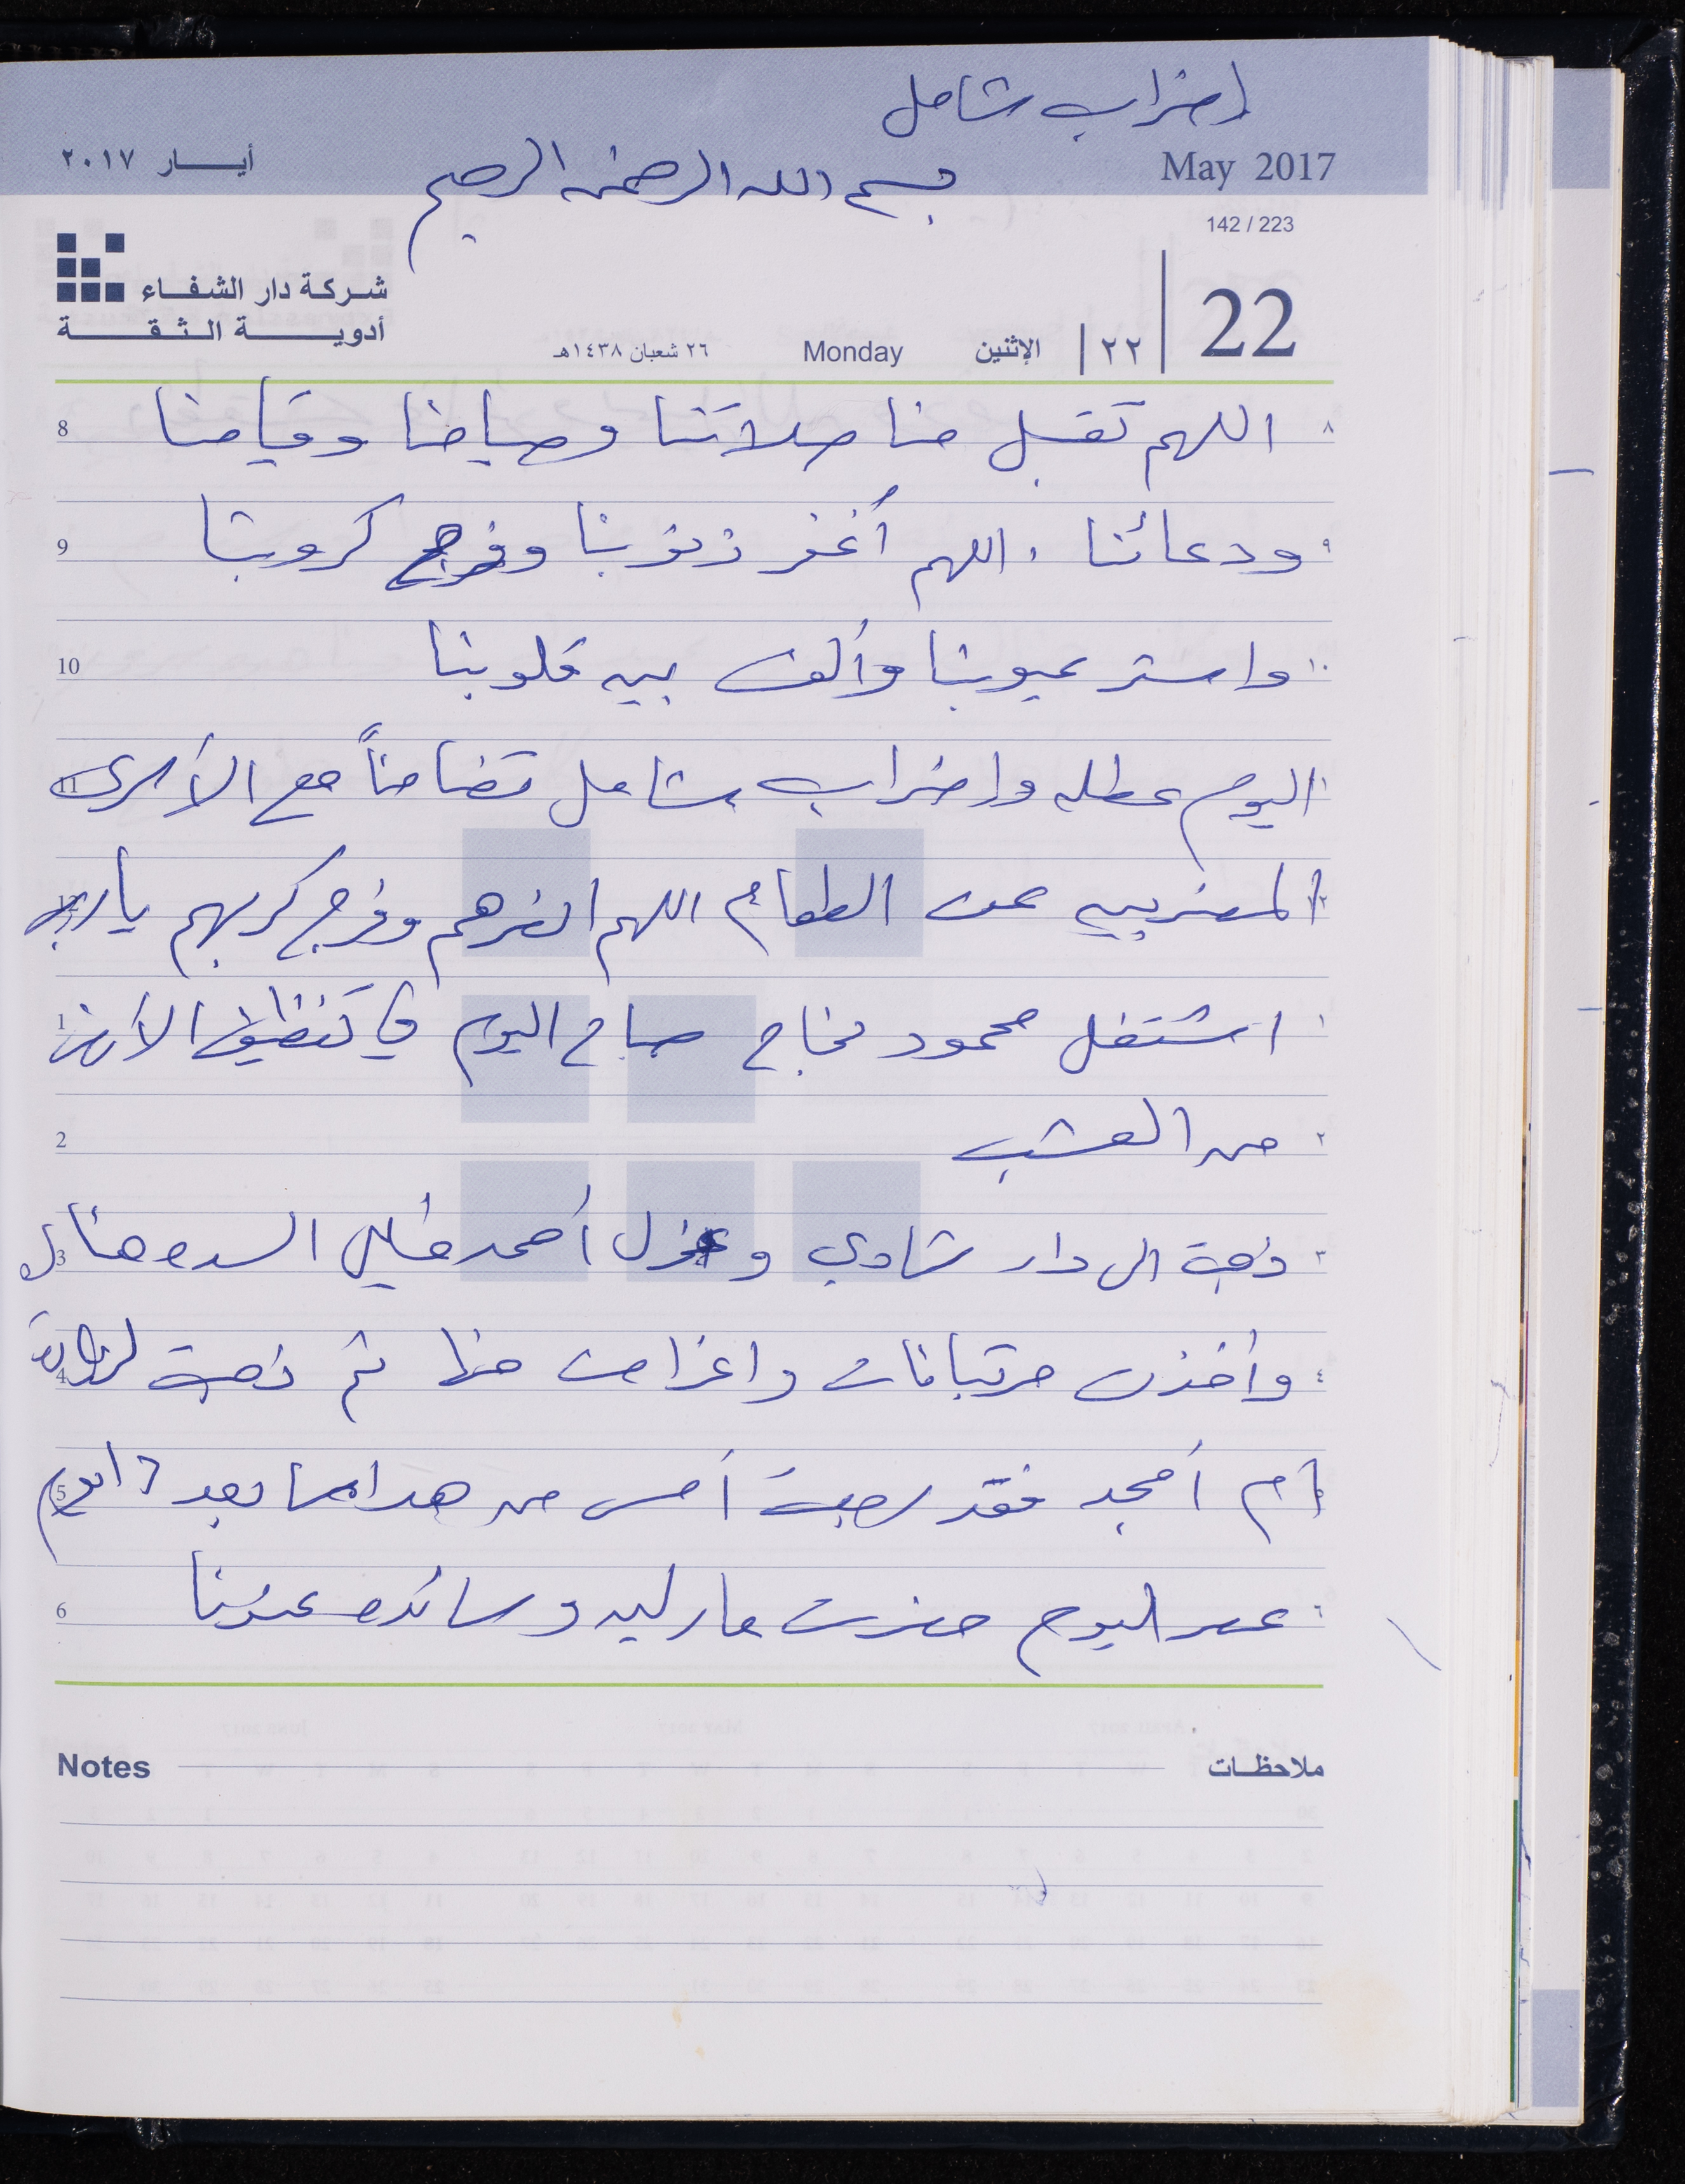 اضراب شامل
May 2017
أيـــار ٢٠١٧
بسم الله الرحمن الرحيم
142 / 223
شركة دار الشفاء
أدوية الثقة
22
٢٢
الإثنين
Monday
٢٦ شعبان ١٤٣٨هـ
8 اللهم تقبل منا صلاتنا وصيامنا وقيامنا ٨
9 ودعائنا . اللهم أغفر ذنوبنا وفرج كروبنا ٩
10 واستر عيوبنا وألف بين قلوبنا ١٠
11 اليوم عطله واضراب شامل تضامناً مع الأسرى ١١
12 المضربين عن الطعام اللهم انصرهم وفرج كربهم يارب ١٢
1 اشتغل محمود نجاح صباح اليوم في تنظيف الأرض ١
2 من العشب ٢
3 ذهبت الى دار شادي و أحمد خليل السدة هناك ٣
4 وأخذت مرتبانات واغراض منها ثم ذهبت لزيارة ٤
5 أم أمجد فقد أمس من بعد ٥
6 عصر اليوم حضرت مارلين وسائده عندنا ٦
Notes
ملاحظات